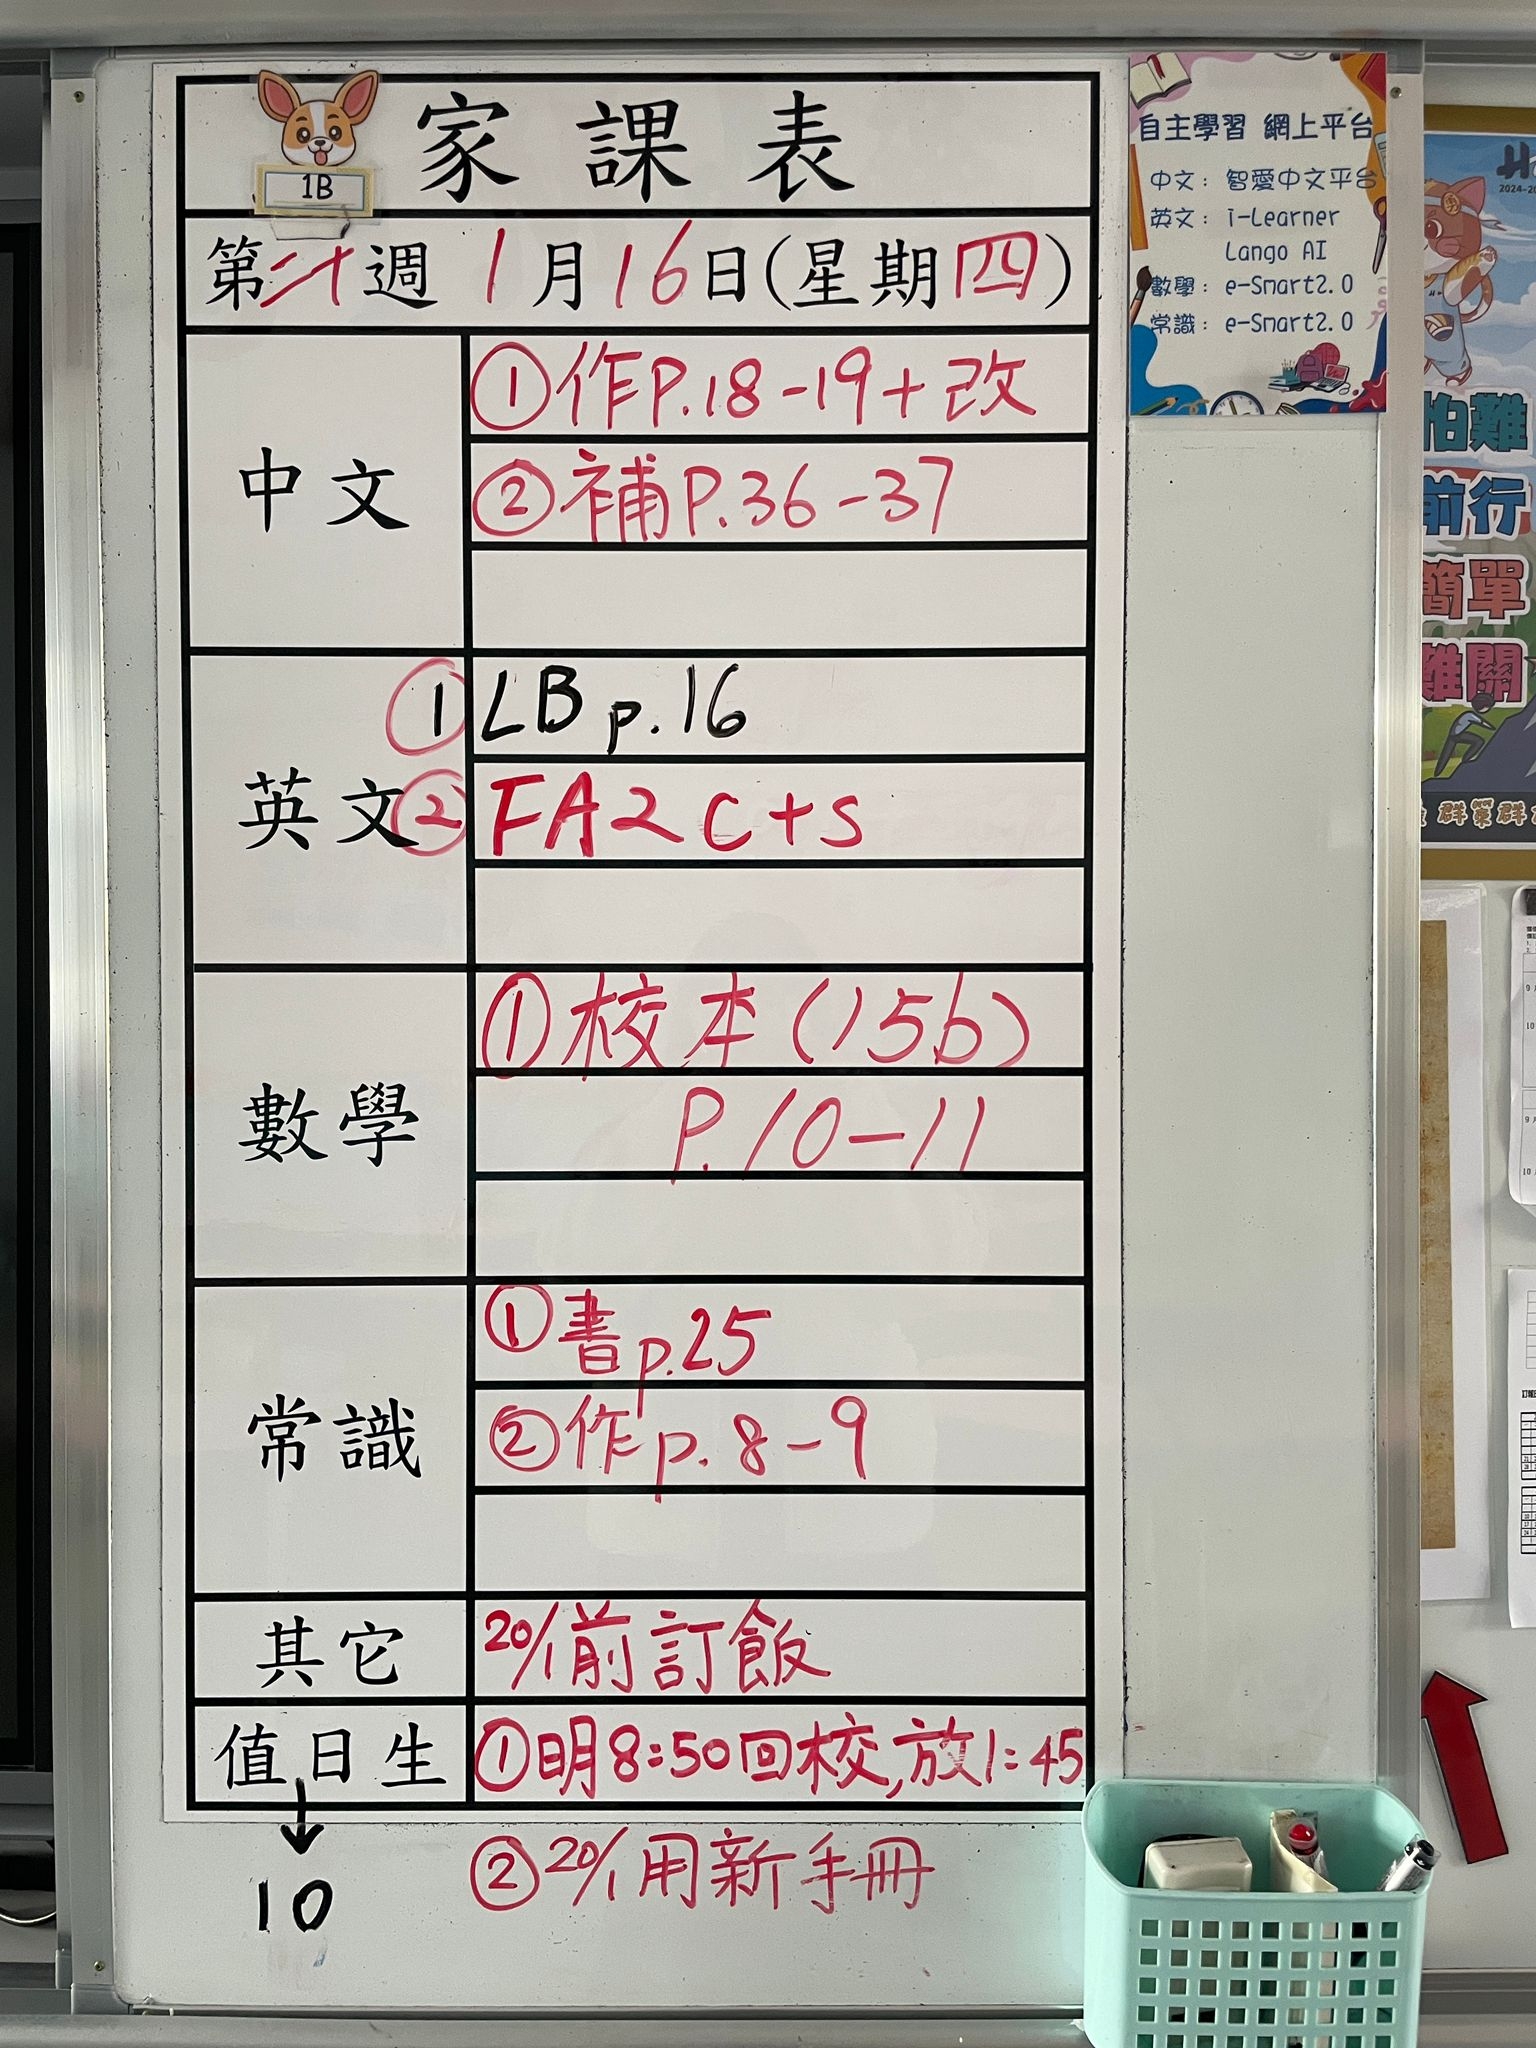 家課表
1B
第二十週 1月16日(星期四)
中文
①作P.18-19+改
②補P.36-37
英文
①LB p.16
②FA2 c+s
數學
①校本(15b)
P.10-11
常識
①書p.25
②作p.8-9
其它
20/1前訂飯
值日生
①明8:50回校,放1:45
10
②20/1用新手冊
自主學習 網上平台
中文: 智愛中文平台
英文: i-Learner
Lango AI
數學: e-Smart2.0
常識: e-Smart2.0
2024-20
怕難
前行
簡單
難關